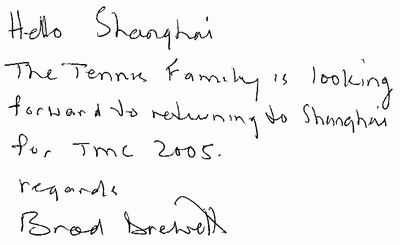 Hello Shanghai
The Tennis Family is looking
forward to returning to Shanghai
for TMC 2005.
regards
Brad Drewett